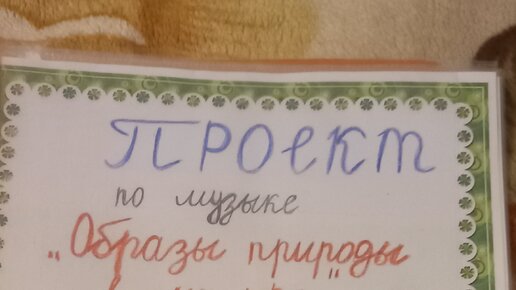 Проект
по музыке
„Образы природы"